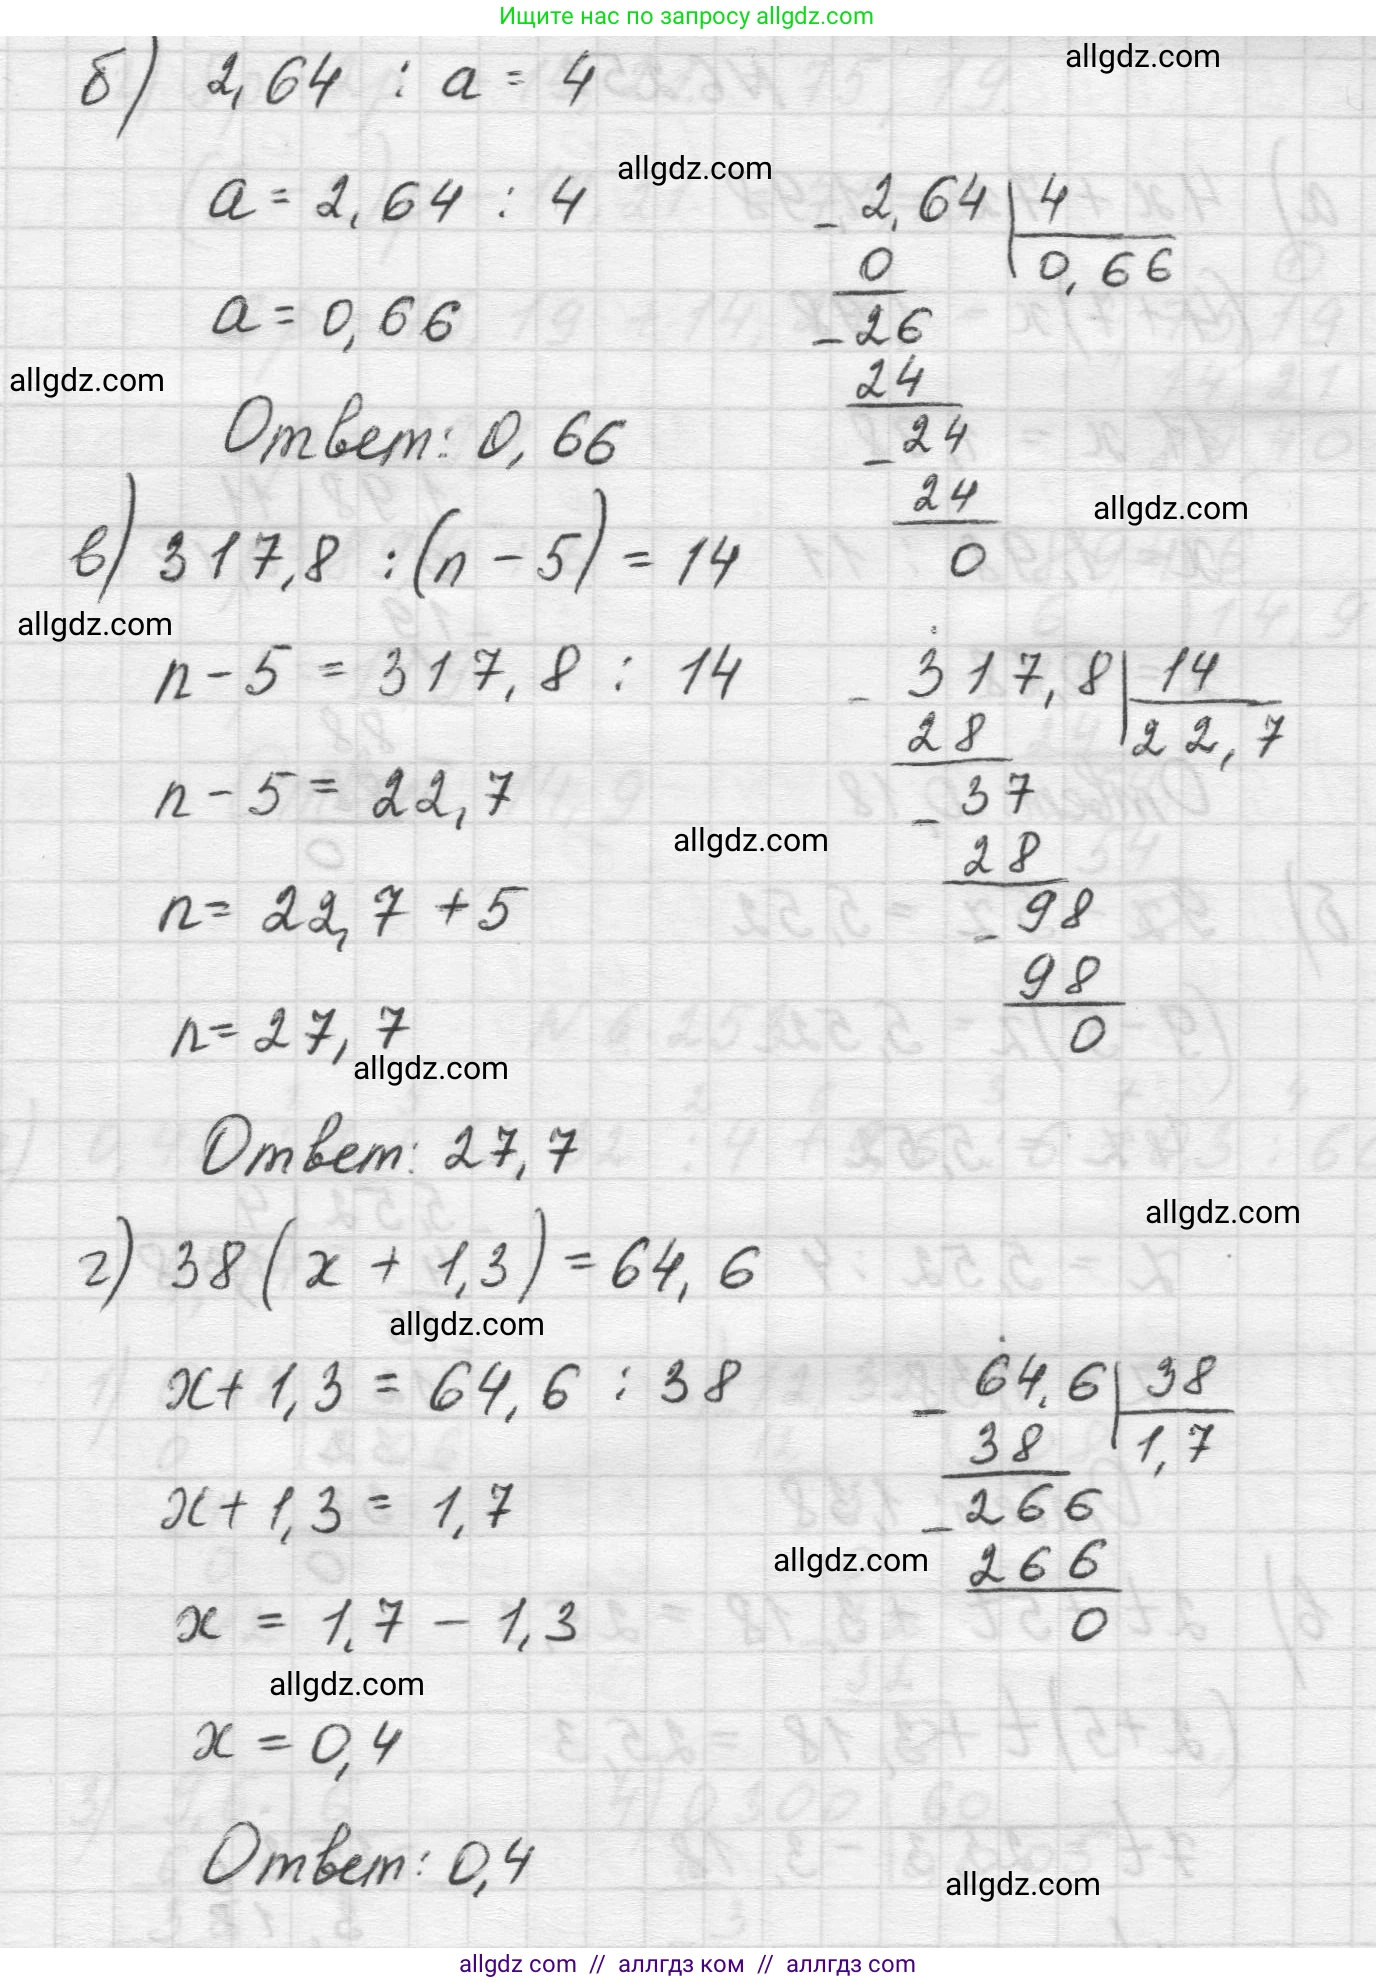 Ищите нас по запросу allgdz.com
allgdz.com
б) 2,64 : a = 4
allgdz.com
a = 2,64 : 4
2,64 | 4
- 0 0,66
a = 0,66
- 26
allgdz.com
24
Ответ: 0,66
- 24
24
allgdz.com
0
в) 317,8 : (n - 5) = 14
allgdz.com
n - 5 = 317,8 : 14
- 317,8 | 14
28 22,7
n - 5 = 22,7
- 37
allgdz.com
28
n = 22,7 + 5
- 98
98
n = 27,7
0
allgdz.com
Ответ: 27,7
allgdz.com
г) 38 (x + 1,3) = 64,6
allgdz.com
x + 1,3 = 64,6 : 38
- 64,6 | 38
38 1,7
x + 1,3 = 1,7
- 266
allgdz.com
266
x = 1,7 - 1,3
0
allgdz.com
x = 0,4
Ответ: 0,4
allgdz.com
allgdz.com // аллгдз ком // аллгдз com